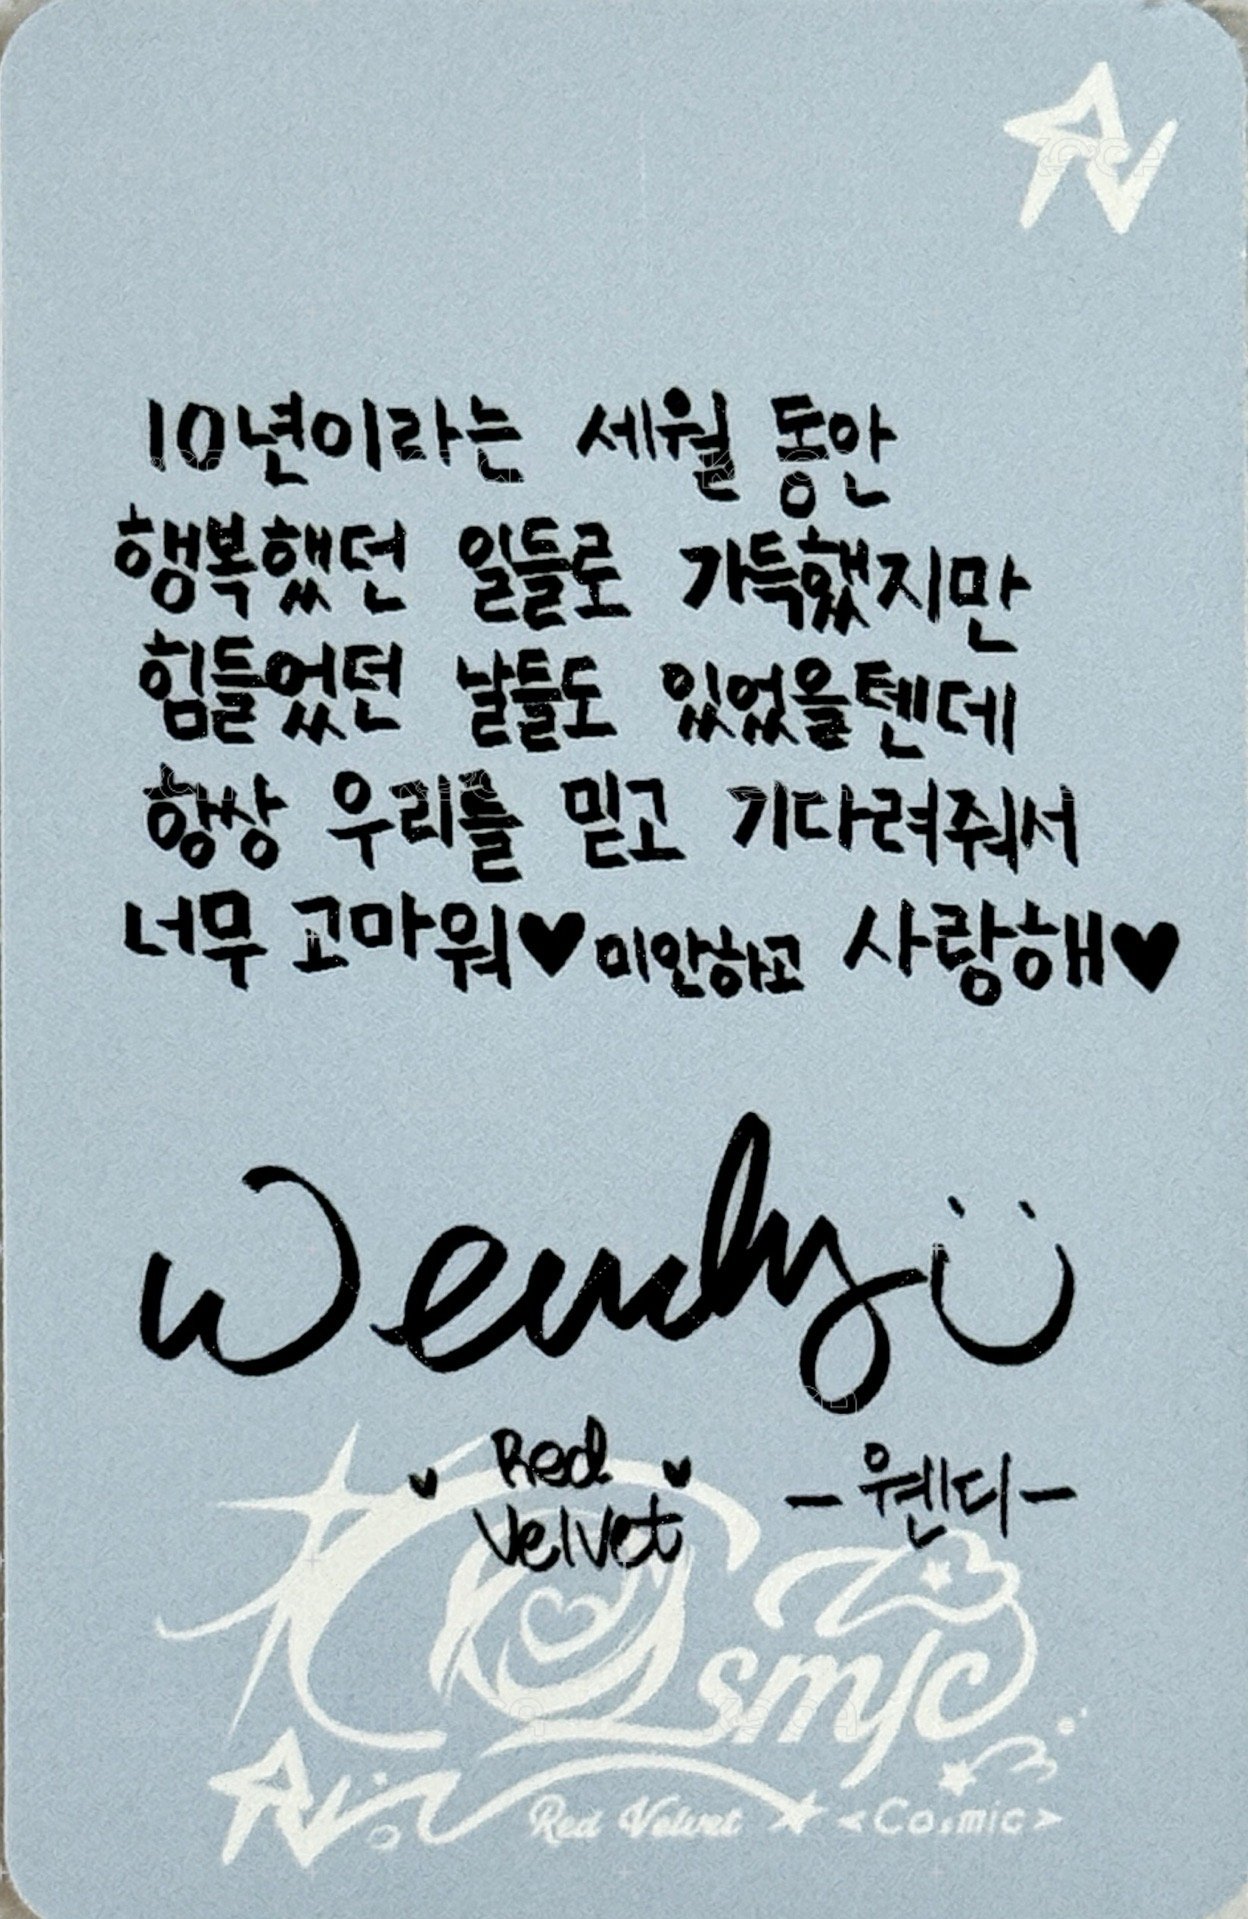 RV
10년이라는 세월 동안
행복했던 일들로 가득했지만
힘들었던 날들도 있었을텐데
항상 우리를 믿고 기다려줘서
너무 고마워♥ 미안하고 사랑해♥
Wendy
Red
Velvet
-웬디-
Cosmic
RV
Red Velvet
<Cosmic>